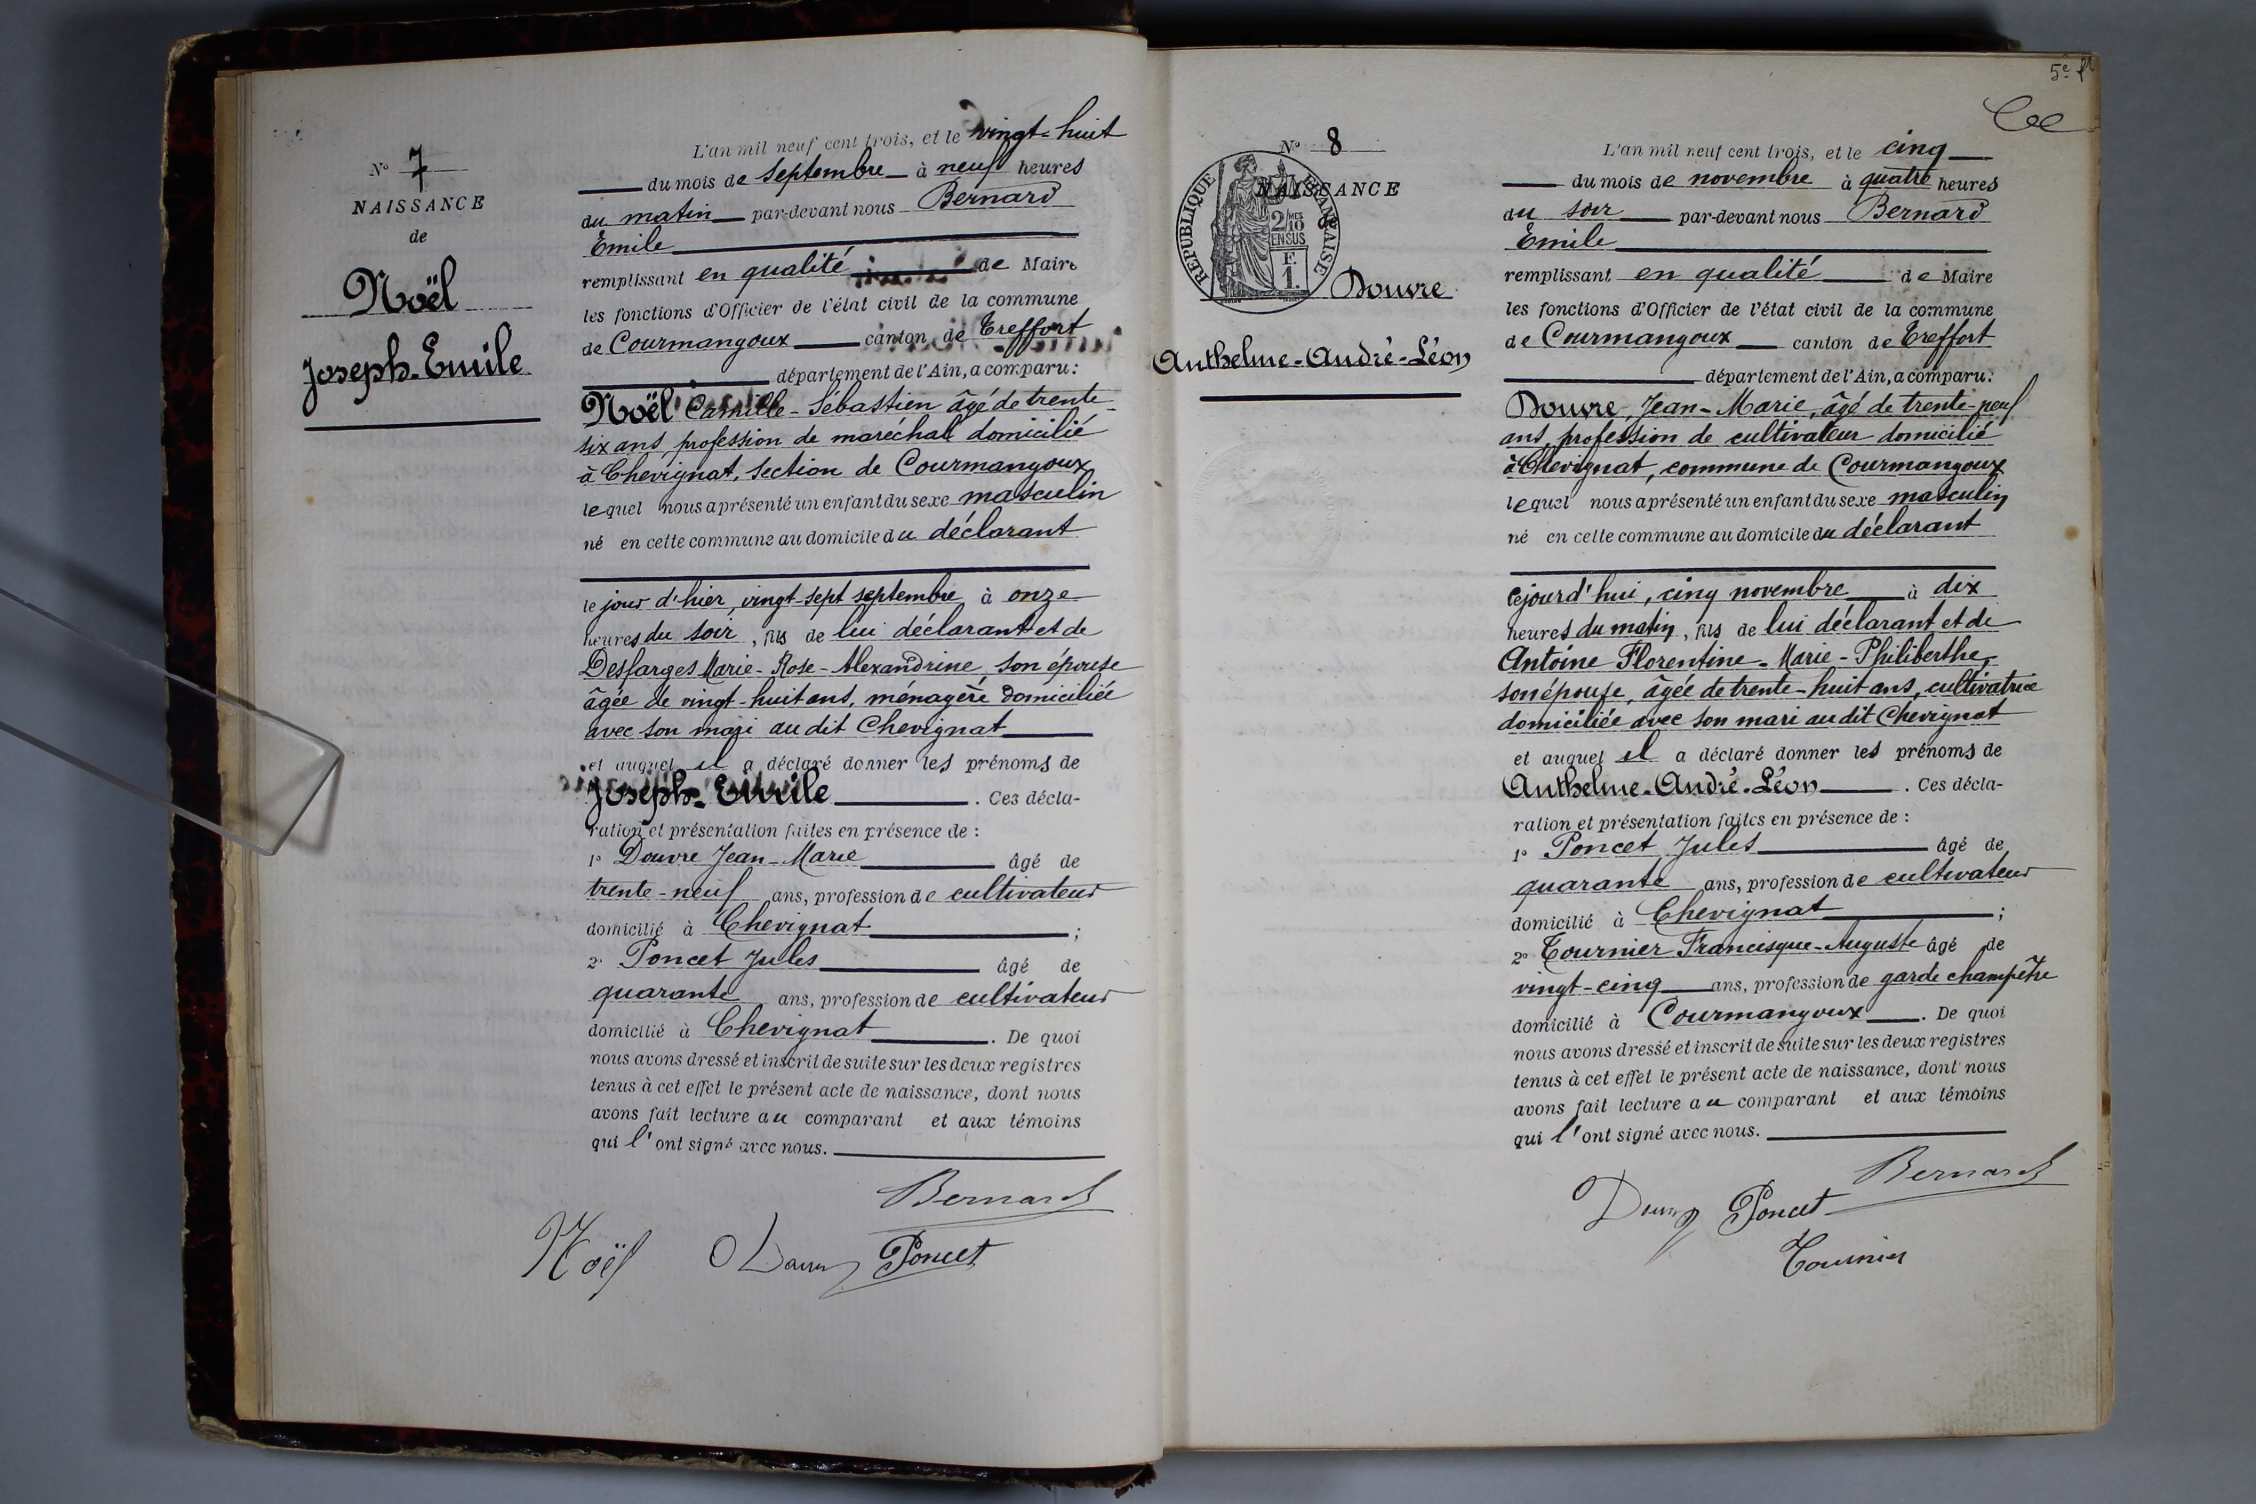 N° 7
NAISSANCE
de
Noël
Joseph-Emile
L'an mil neuf cent trois, et le vingt-huit
du mois de septembre à neuf heures
du matin par-devant nous Bernard
Emile
remplissant en qualité de Maire
les fonctions d'Officier de l'état civil de la commune
de Courmangoux canton de Treffort
département de l'Ain, a comparu:
Noël Camille-Sébastien âgé de trente-
six ans, profession de maréchal domicilié
à Chevignat, section de Courmangoux
lequel nous a présenté un enfant du sexe masculin
né en cette commune au domicile du déclarant
le jour d'hier, vingt-sept septembre à onze
heures du soir, fils de lui déclarant et de
Desfarges Marie-Rose-Alexandrine, son épouse
âgée de vingt-huit ans, ménagère domiciliée
avec son mari au dit Chevignat
et auquel il a déclaré donner les prénoms de
Joseph-Emile. Ces décla-
ration et présentation faites en présence de :
1° Douvre Jean-Marie âgé de
trente-neuf ans, profession de cultivateur
domicilié à Chevignat ;
2° Poncet Jules âgé de
quarante ans, profession de cultivateur
domicilié à Chevignat. De quoi
nous avons dressé et inscrit de suite sur les deux registres
tenus à cet effet le présent acte de naissance, dont nous
avons fait lecture au comparant et aux témoins
qui l'ont signé avec nous.
Bernard
Noël Douvre Poncet
5e f
N° 8
NAISSANCE
de
RÉPUBLIQUE FRANÇAISE
2/10 MES
EN SUS
F.
1.
Douvre
Anthelme-André-Léon
L'an mil neuf cent trois, et le cinq
du mois de novembre à quatre heures
du soir par-devant nous Bernard
Emile
remplissant en qualité de Maire
les fonctions d'Officier de l'état civil de la commune
de Courmangoux canton de Treffort
département de l'Ain, a comparu:
Douvre Jean-Marie, âgé de trente-neuf
ans, profession de cultivateur domicilié
à Chevignat, commune de Courmangoux
lequel nous a présenté un enfant du sexe masculin
né en cette commune au domicile du déclarant
cejourd'hui, cinq novembre à dix
heures du matin, fils de lui déclarant et de
Antoine Florentine-Marie-Philiberthe,
son épouse, âgée de trente-huit ans, cultivatrice
domiciliée avec son mari au dit Chevignat
et auquel il a déclaré donner les prénoms de
Anthelme-André-Léon. Ces décla-
ration et présentation faites en présence de :
1° Poncet Jules âgé de
quarante ans, profession de cultivateur
domicilié à Chevignat ;
2° Tournier Francisque-Auguste âgé de
vingt-cinq ans, profession de garde champêtre
domicilié à Courmangoux. De quoi
nous avons dressé et inscrit de suite sur les deux registres
tenus à cet effet le présent acte de naissance, dont nous
avons fait lecture au comparant et aux témoins
qui l'ont signé avec nous.
Bernard
Douvre Poncet
Tournier